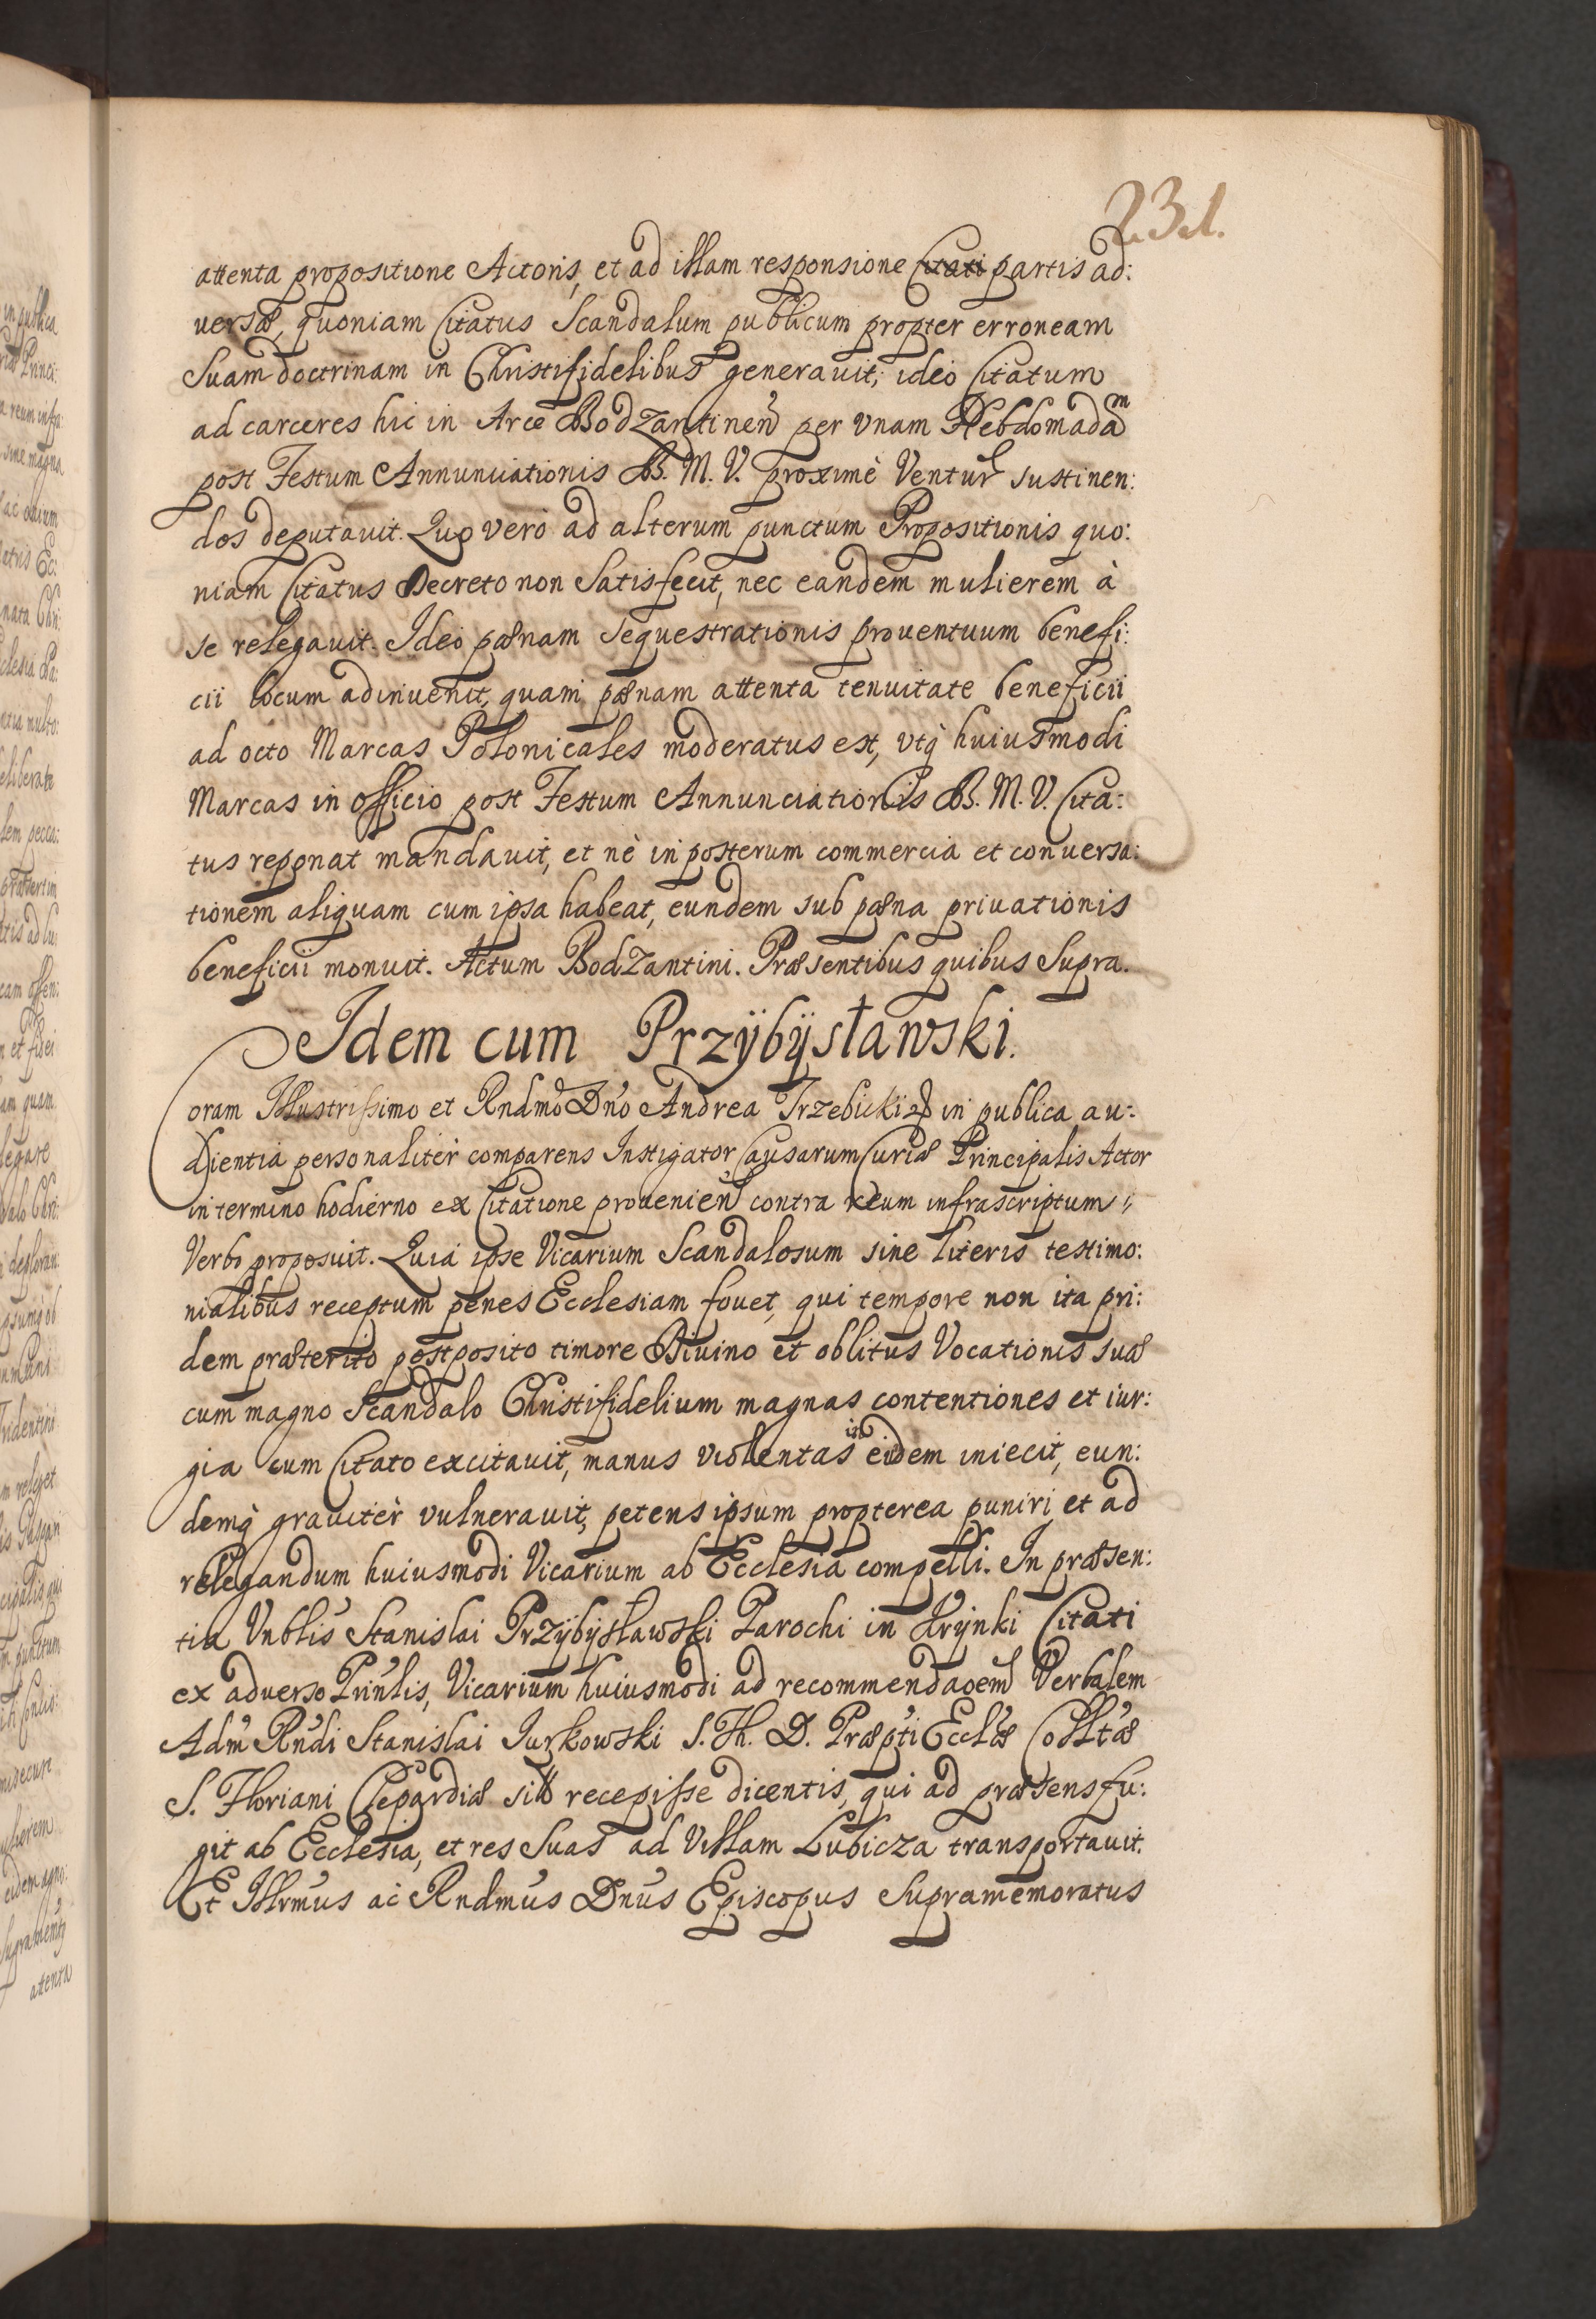 231.
attenta propositione Actoris, et ad illam responsione Citati partis ad:
versæ, quoniam Citatus Scandalum publicum propter erroneam
Suam doctrinam in Christifidelibus generauit; ideo Citatum
ad carceres hic in Arce Bodzantinen per vnam Hebdomadam
post Festum Annunciationis B. M. V. proximè Ventur sustinen:
dos deputauit. Quo verò ad alterum punctum Propositionis quo:
niam Citatus Decreto non Satisfecit, nec eandem mulierem à
se relegauit. Ideo pænam sequestrationis prouentuum benefi:
cii locum adinuenit, quam pænam attenta tenuitate beneficii
ad octo Marcas Polonicales moderatus est, vtq huiusmodi
Marcas in officio post Festum Annunciationis B. M. V. Cita:
tus reponat mandauit, et nè in posterum commercia et conuersa:
tionem aliquam cum ipsa habeat, eundem sub pæna priuationis
beneficii monuit. Actum Bodzantini. Præsentibus quibus Supra.
Idem cum Przÿbÿsławski.
Coram Illustrissimo et Rndmo Dno Andrea Trzebicki in publica au:
dientia personalitèr comparens Instigator Causarum Curiæ Principalis Actor
in termino hodierno ex Citatione prouenien contra reum infrascriptum
Verbo proposuit. Quia ipse Vicarium Scandalosum sine literis testimo:
nialibus receptum penes Ecclesiam fouet, qui tempore non ita pri:
dem præterito postposito timore Diuino et oblitus Vocationis suæ
cum magno Scandalo Christifidelium magnas contentiones et iur:
gia cum Citato excitauit, manus violentas in eidem iniecit, eun:
demq grauitèr vulnerauit, petens ipsum propterea puniri, et ad
relegandum huiusmodi Vicarium ab Ecclesia compelli. In præsen:
tia Vnblis Stanislai Przÿbÿsławski Parochi in Krÿnki Citati
ex aduerso Prinlis, Vicarium huiusmodi ad recommendaoem Verbalem
Adm Rndi Stanislai Jurkowski S. Th. D. Præpti Ecclæ Colltæ
S. Floriani Clepardiæ sibi recepisse dicentis, qui ad præsens fu:
git ab Ecclesia, et res Suas ad Villam Lubicza transportauit.
Et Illrmus ac Rndmus Dnus Episcopus Supramemoratus